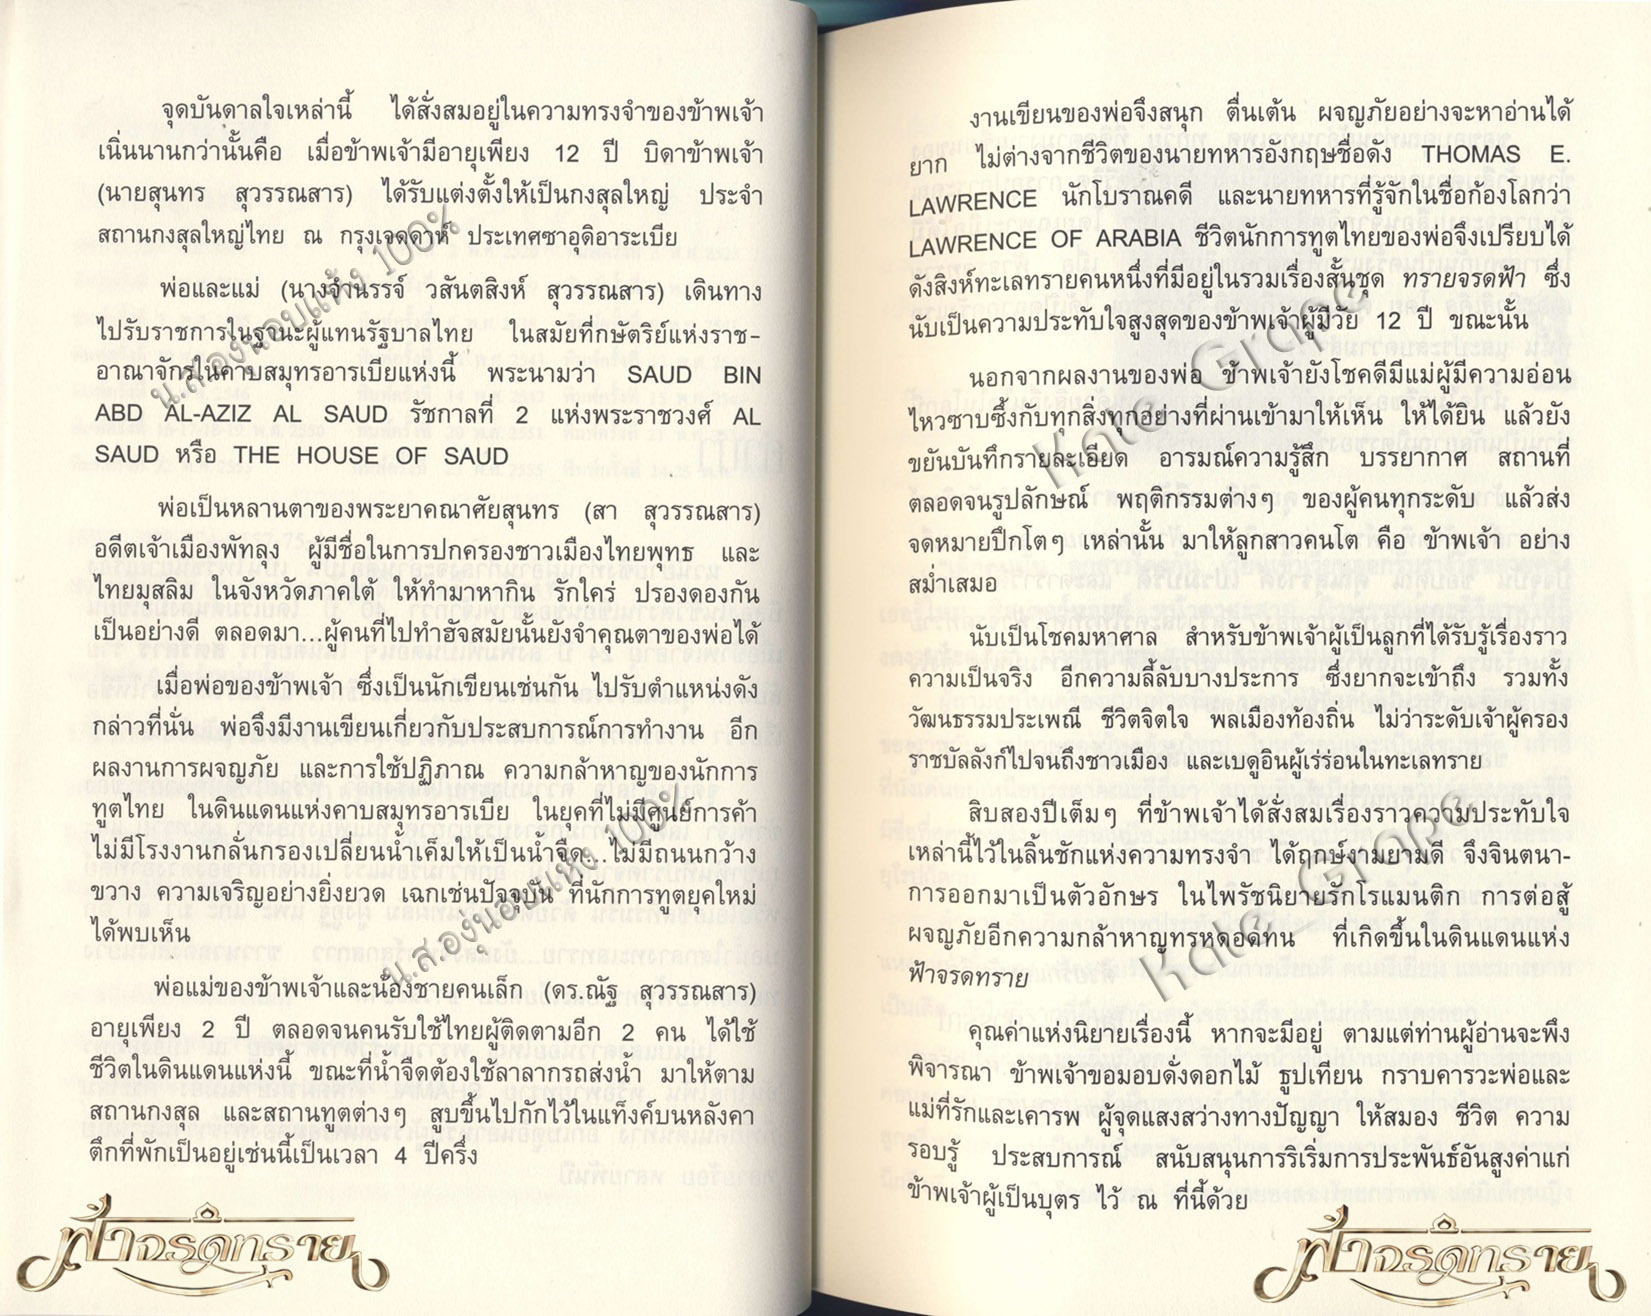 จุดบันดาลใจเหล่านี้ ได้สั่งสมอยู่ในความทรงจำของข้าพเจ้า
เนิ่นนานกว่านั้นคือ เมื่อข้าพเจ้ามีอายุเพียง 12 ปี บิดาข้าพเจ้า
(นายสุนทร สุวรรณสาร) ได้รับแต่งตั้งให้เป็นกงสุลใหญ่ ประจำ
สถานกงสุลใหญ่ไทย ณ กรุงเจดดาห์ ประเทศซาอุดิอาระเบีย
พ่อและแม่ (นางจำนรรจ์ วสันตสิงห์ สุวรรณสาร) เดินทาง
ไปรับราชการในฐานะผู้แทนรัฐบาลไทย ในสมัยที่กษัตริย์แห่งราช-
อาณาจักรในคาบสมุทรอารเบียแห่งนี้ พระนามว่า SAUD BIN
ABD AL-AZIZ AL SAUD รัชกาลที่ 2 แห่งพระราชวงศ์ AL
SAUD หรือ THE HOUSE OF SAUD
พ่อเป็นหลานตาของพระยาคณาศัยสุนทร (สา สุวรรณสาร)
อดีตเจ้าเมืองพัทลุง ผู้มีชื่อในการปกครองชาวเมืองไทยพุทธ และ
ไทยมุสลิม ในจังหวัดภาคใต้ ให้ทำมาหากิน รักใคร่ ปรองดองกัน
เป็นอย่างดี ตลอดมา...ผู้คนที่ไปทำฮัจสมัยนั้นยังจำคุณตาของพ่อได้
เมื่อพ่อของข้าพเจ้า ซึ่งเป็นนักเขียนเช่นกัน ไปรับตำแหน่งดัง
กล่าวที่นั่น พ่อจึงมีงานเขียนเกี่ยวกับประสบการณ์การทำงาน อีก
ผลงานการผจญภัย และการใช้ปฏิภาณ ความกล้าหาญของนักการ
ทูตไทย ในดินแดนแห่งคาบสมุทรอารเบีย ในยุคที่ไม่มีศูนย์การค้า
ไม่มีโรงงานกลั่นกรองเปลี่ยนน้ำเค็มให้เป็นน้ำจืด...ไม่มีถนนกว้าง
ขวาง ความเจริญอย่างยิ่งยวด เฉกเช่นปัจจุบัน ที่นักการทูตยุคใหม่
ได้พบเห็น
พ่อแม่ของข้าพเจ้าและน้องชายคนเล็ก (ดร.ณัฐ สุวรรณสาร)
อายุเพียง 2 ปี ตลอดจนคนรับใช้ไทยผู้ติดตามอีก 2 คน ได้ใช้
ชีวิตในดินแดนแห่งนี้ ขณะที่น้ำจืดต้องใช้ลาลากรถส่งน้ำ มาให้ตาม
สถานกงสุล และสถานทูตต่างๆ สูบขึ้นไปกักไว้ในแท็งค์บนหลังคา
ตึกที่พักเป็นอยู่เช่นนี้เป็นเวลา 4 ปีครึ่ง
น.ส.องุ่นอบแห้ง 100%
น.ส.องุ่นอบแห้ง 100%
ฟ้าจรดทราย
งานเขียนของพ่อจึงสนุก ตื่นเต้น ผจญภัยอย่างจะหาอ่านได้
ยาก ไม่ต่างจากชีวิตของนายทหารอังกฤษชื่อดัง THOMAS E.
LAWRENCE นักโบราณคดี และนายทหารที่รู้จักในชื่อก้องโลกว่า
LAWRENCE OF ARABIA ชีวิตนักการทูตไทยของพ่อจึงเปรียบได้
ดังสิงห์ทะเลทรายคนหนึ่งที่มีอยู่ในรวมเรื่องสั้นชุด ทรายจรดฟ้า ซึ่ง
นับเป็นความประทับใจสูงสุดของข้าพเจ้าผู้มีวัย 12 ปี ขณะนั้น
นอกจากผลงานของพ่อ ข้าพเจ้ายังโชคดีมีแม่ผู้มีความอ่อน
ไหวซาบซึ้งกับทุกสิ่งทุกอย่างที่ผ่านเข้ามาให้เห็น ให้ได้ยิน แล้วยัง
ขยันบันทึกรายละเอียด อารมณ์ความรู้สึก บรรยากาศ สถานที่
ตลอดจนรูปลักษณ์ พฤติกรรมต่างๆ ของผู้คนทุกระดับ แล้วส่ง
จดหมายปึกโตๆ เหล่านั้น มาให้ลูกสาวคนโต คือ ข้าพเจ้า อย่าง
สม่ำเสมอ
นับเป็นโชคมหาศาล สำหรับข้าพเจ้าผู้เป็นลูกที่ได้รับรู้เรื่องราว
ความเป็นจริง อีกความลี้ลับบางประการ ซึ่งยากจะเข้าถึง รวมทั้ง
วัฒนธรรมประเพณี ชีวิตจิตใจ พลเมืองท้องถิ่น ไม่ว่าระดับเจ้าผู้ครอง
ราชบัลลังก์ไปจนถึงชาวเมือง และเบดูอินผู้เร่ร่อนในทะเลทราย
สิบสองปีเต็มๆ ที่ข้าพเจ้าได้สั่งสมเรื่องราวความประทับใจ
เหล่านี้ไว้ในลิ้นชักแห่งความทรงจำ ได้ฤกษ์งามยามดี จึงจินตนา-
การออกมาเป็นตัวอักษร ในไพรัชนิยายรักโรแมนติก การต่อสู้
ผจญภัยอีกความกล้าหาญทรหดอดทน ที่เกิดขึ้นในดินแดนแห่ง
ฟ้าจรดทราย
คุณค่าแห่งนิยายเรื่องนี้ หากจะมีอยู่ ตามแต่ท่านผู้อ่านจะพึง
พิจารณา ข้าพเจ้าขอมอบดั่งดอกไม้ ธูปเทียน กราบคารวะพ่อและ
แม่ที่รักและเคารพ ผู้จุดแสงสว่างทางปัญญา ให้สมอง ชีวิต ความ
รอบรู้ ประสบการณ์ สนับสนุนการริเริ่มการประพันธ์อันสูงค่าแก่
ข้าพเจ้าผู้เป็นบุตร ไว้ ณ ที่นี้ด้วย
Kate_Grape
Kate_Grape
ฟ้าจรดทราย